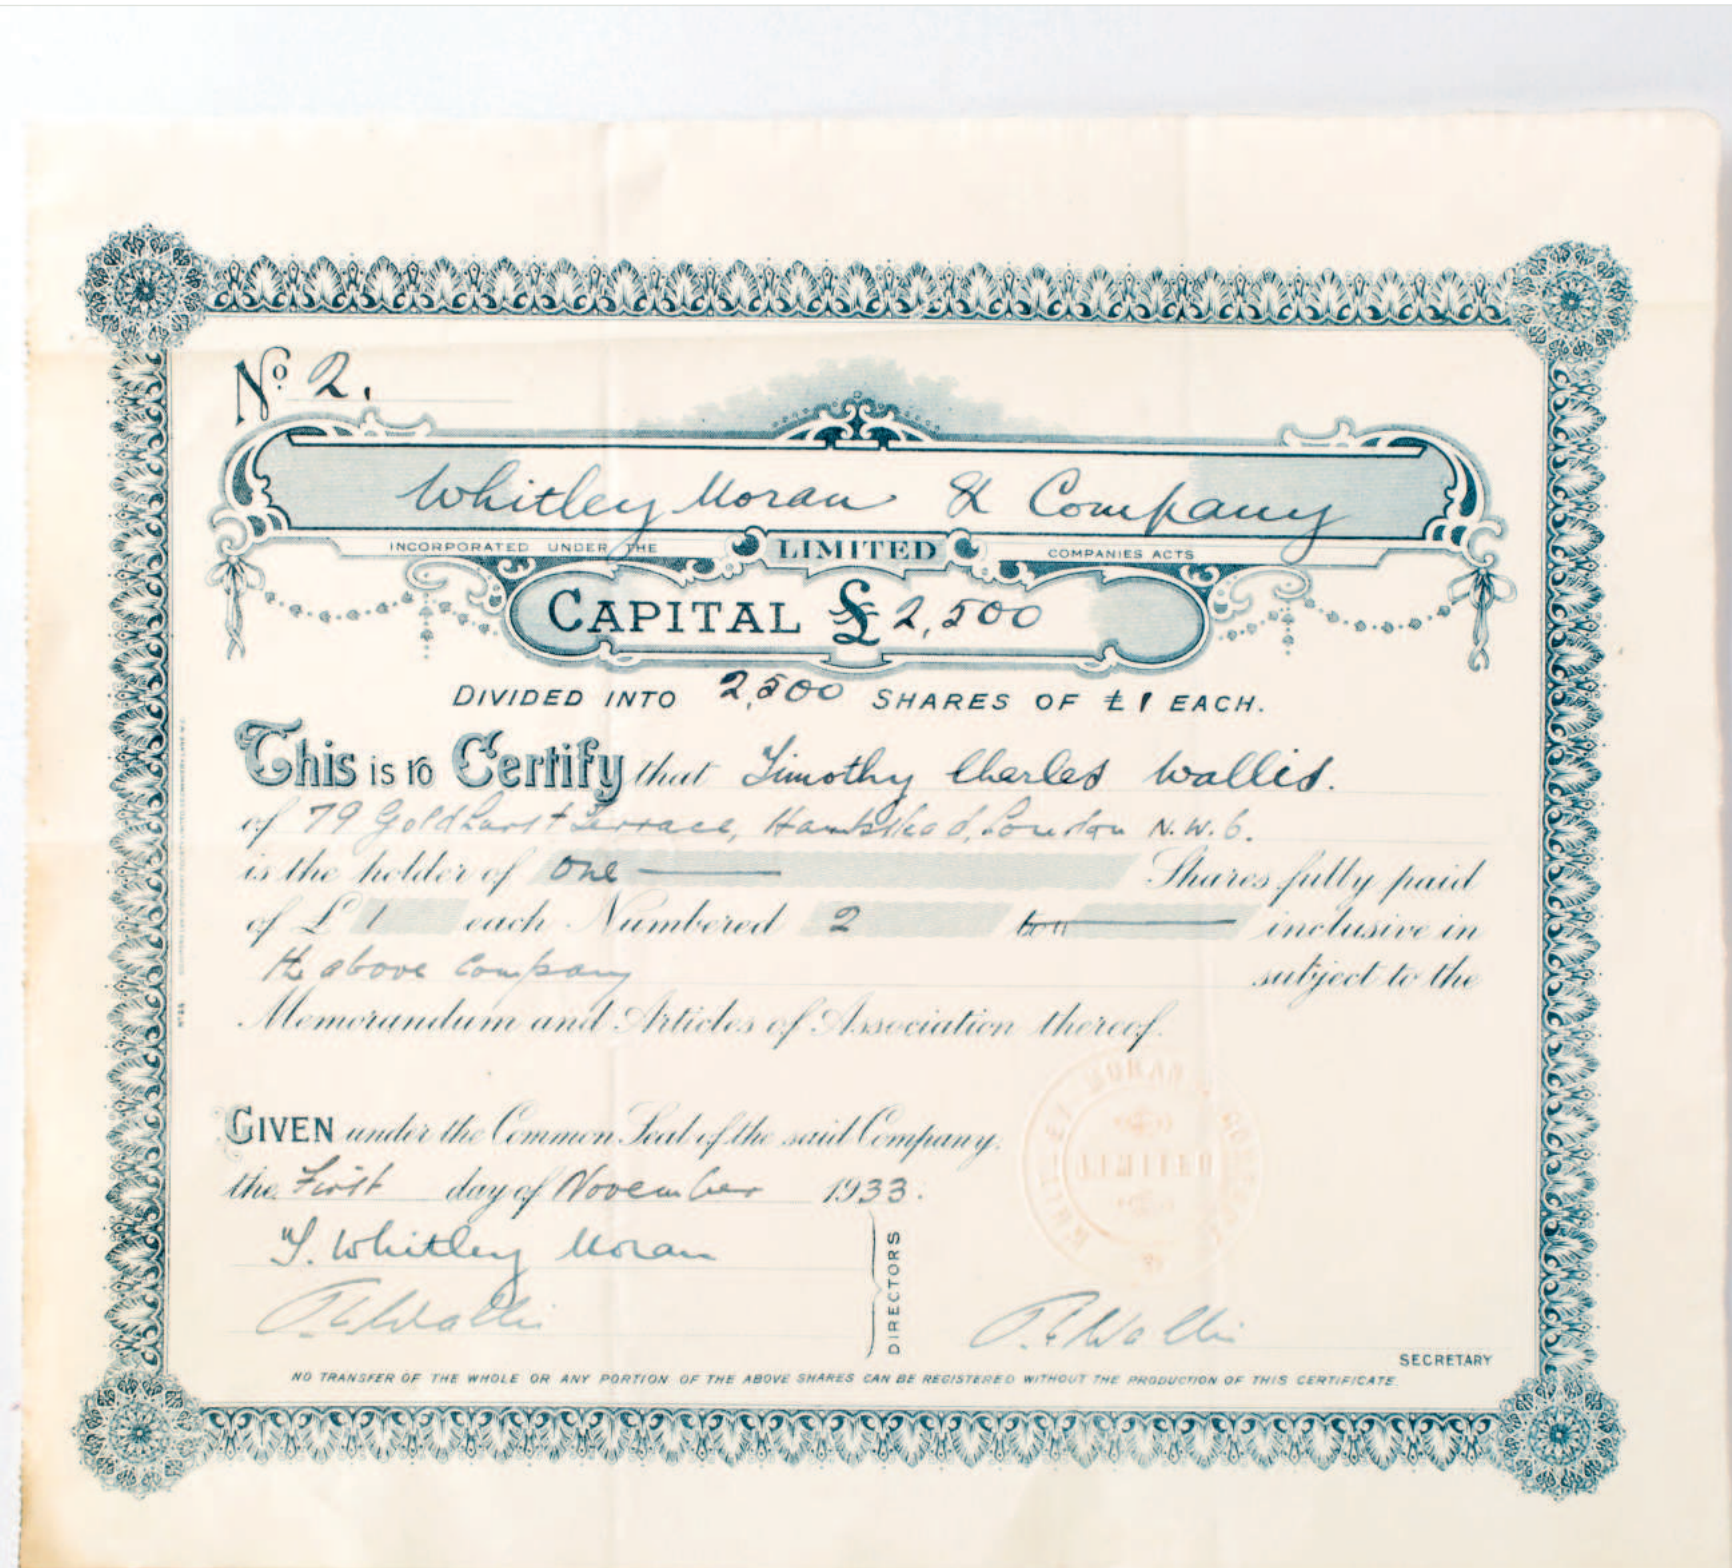 No 2.
Whitley Moran & Company
INCORPORATED UNDER THE LIMITED COMPANIES ACTS
CAPITAL £2,500
DIVIDED INTO 2,500 SHARES OF £1 EACH.
This is to Certify that Timothy Charles Wallis.
of 79 Goldhurst Terrace, Hampstead, London N.W.6.
is the holder of one Shares fully paid
of £1 each Numbered 2 inclusive in
the above Company subject to the
Memorandum and Articles of Association thereof.
GIVEN under the Common Seal of the said Company.
the First day of November 1933.
T. Whitley Moran
T. C. Wallis
DIRECTORS
T. C. Wallis
SECRETARY
NO TRANSFER OF THE WHOLE OR ANY PORTION OF THE ABOVE SHARES CAN BE REGISTERED WITHOUT THE PRODUCTION OF THIS CERTIFICATE.
WHITLEY MORAN & COMPANY
LIMITED